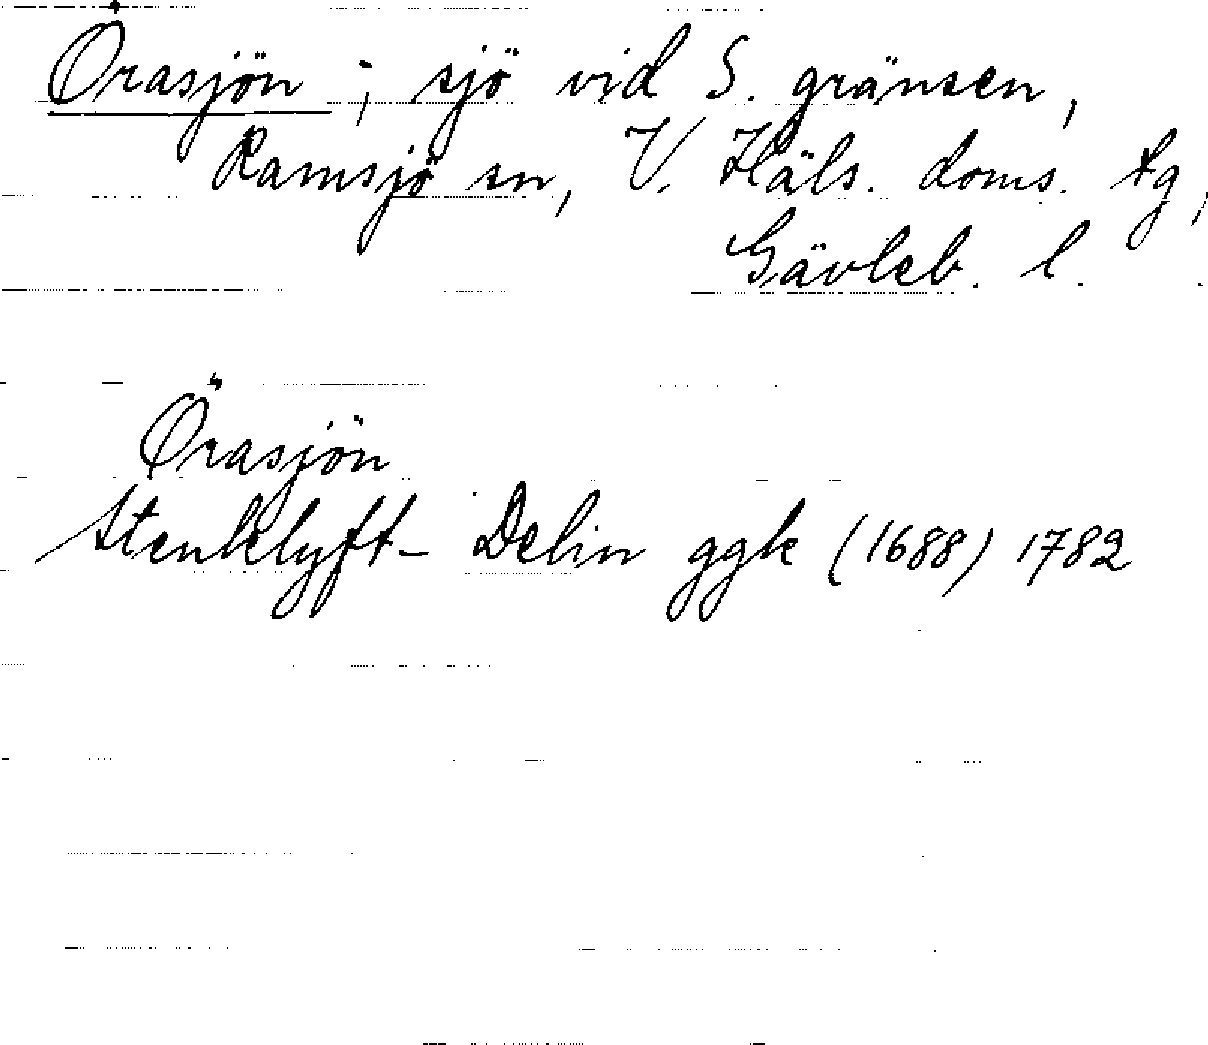 Örasjön ; sjö vid S. gränsen,
Ramsjö sn, V. Häls. doms. tg,
Gävleb. l.
Örasjön
Stenklyft- Delin ggk (1688) 1782